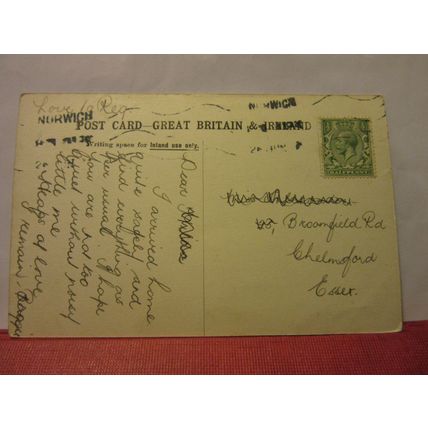 Love to Reg
NORWICH
NORWICH
POST CARD—GREAT BRITAIN & IRELAND
Writing space for Inland use only.
HALFPENNY
Dear
I arrived home
quite safely and
find everything as
per usual. I hope
you are not too
quiet without noisy
little me
Heaps of love
I remain, Maggie
Broomfield Rd
Chelmsford
Essex.